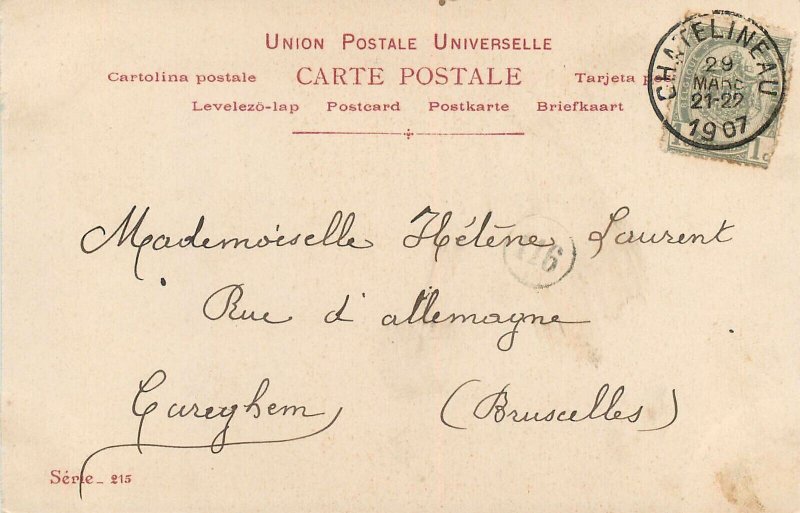 UNION POSTALE UNIVERSELLE
Cartolina postale CARTE POSTALE Tarjeta
Levelező-lap Postcard Postkarte Briefkaart
CHATELINEAU
29
MARS
21-22
1907
1c
Mademoiselle Hélène Laurent
Rue d'allemagne
Cureghem (Bruscelles)
Série_ 215